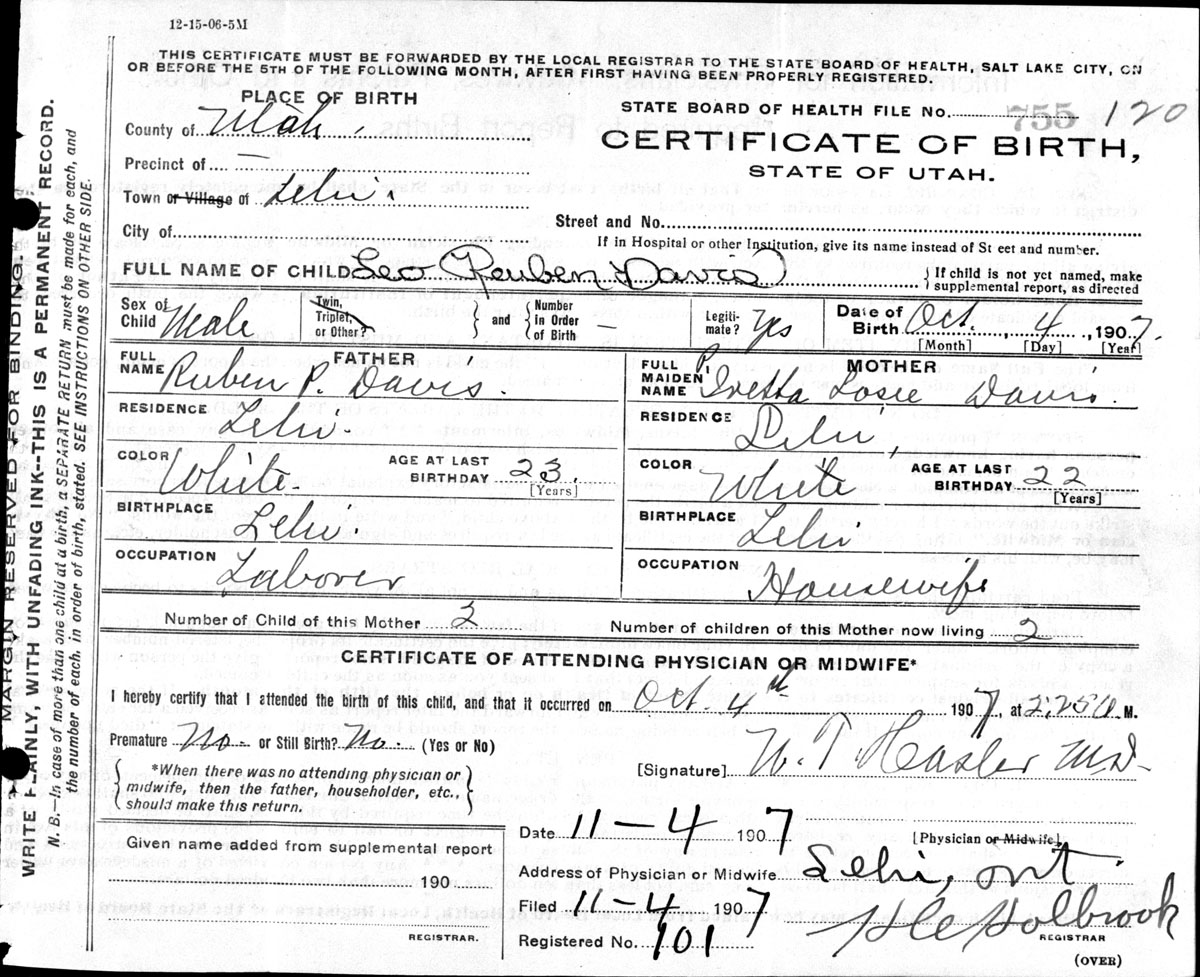 12-15-06-5M
THIS CERTIFICATE MUST BE FORWARDED BY THE LOCAL REGISTRAR TO THE STATE BOARD OF HEALTH, SALT LAKE CITY, ON
OR BEFORE THE 5TH OF THE FOLLOWING MONTH, AFTER FIRST HAVING BEEN PROPERLY REGISTERED.
PLACE OF BIRTH
STATE BOARD OF HEALTH FILE No. 755 120
County of Utah
CERTIFICATE OF BIRTH,
STATE OF UTAH.
Precinct of —
Town or Village of Lehi.
Street and No.
City of
If in Hospital or other Institution, give its name instead of St eet and number.
FULL NAME OF CHILD Leo Reuben Davis
{ If child is not yet named, make supplemental report, as directed
Sex of Child Male
Twin, Triplet, or Other? } and { Number in Order of Birth —
Legiti- mate? Yes
Date of Birth Oct. 4, 1907.
[Month] [Day] [Year]
FATHER
FULL NAME Ruben P. Davis.
RESIDENCE Lehi.
COLOR White. AGE AT LAST BIRTHDAY 23.
[Years]
BIRTHPLACE Lehi
OCCUPATION Laborer
MOTHER
FULL MAIDEN NAME Davis.
RESIDENCE Lehi,
COLOR White AGE AT LAST BIRTHDAY 22
[Years]
BIRTHPLACE Lehi
OCCUPATION Housewife
Number of Child of this Mother 2 Number of children of this Mother now living 2
CERTIFICATE OF ATTENDING PHYSICIAN OR MIDWIFE*
I hereby certify that I attended the birth of this child, and that it occurred on Oct. 4th 1907, at M.
Premature No. or Still Birth? No. (Yes or No)
[Signature] M.D.
{ *When there was no attending physician or
midwife, then the father, householder, etc.,
should make this return. }
Date 11-4 1907 [Physician or Midwife]
Given name added from supplemental report
190
REGISTRAR.
Address of Physician or Midwife Lehi,
Filed 11-4 1907 Holbrook
REGISTRAR
Registered No. 101
(OVER)
MARGIN RESERVED FOR BINDING.
WRITE PLAINLY, WITH UNFADING INK--THIS IS A PERMANENT RECORD.
N. B.—In case of more than one child at a birth, a SEPARATE RETURN must be made for each, and
the number of each, in order of birth, stated. SEE INSTRUCTIONS ON OTHER SIDE.